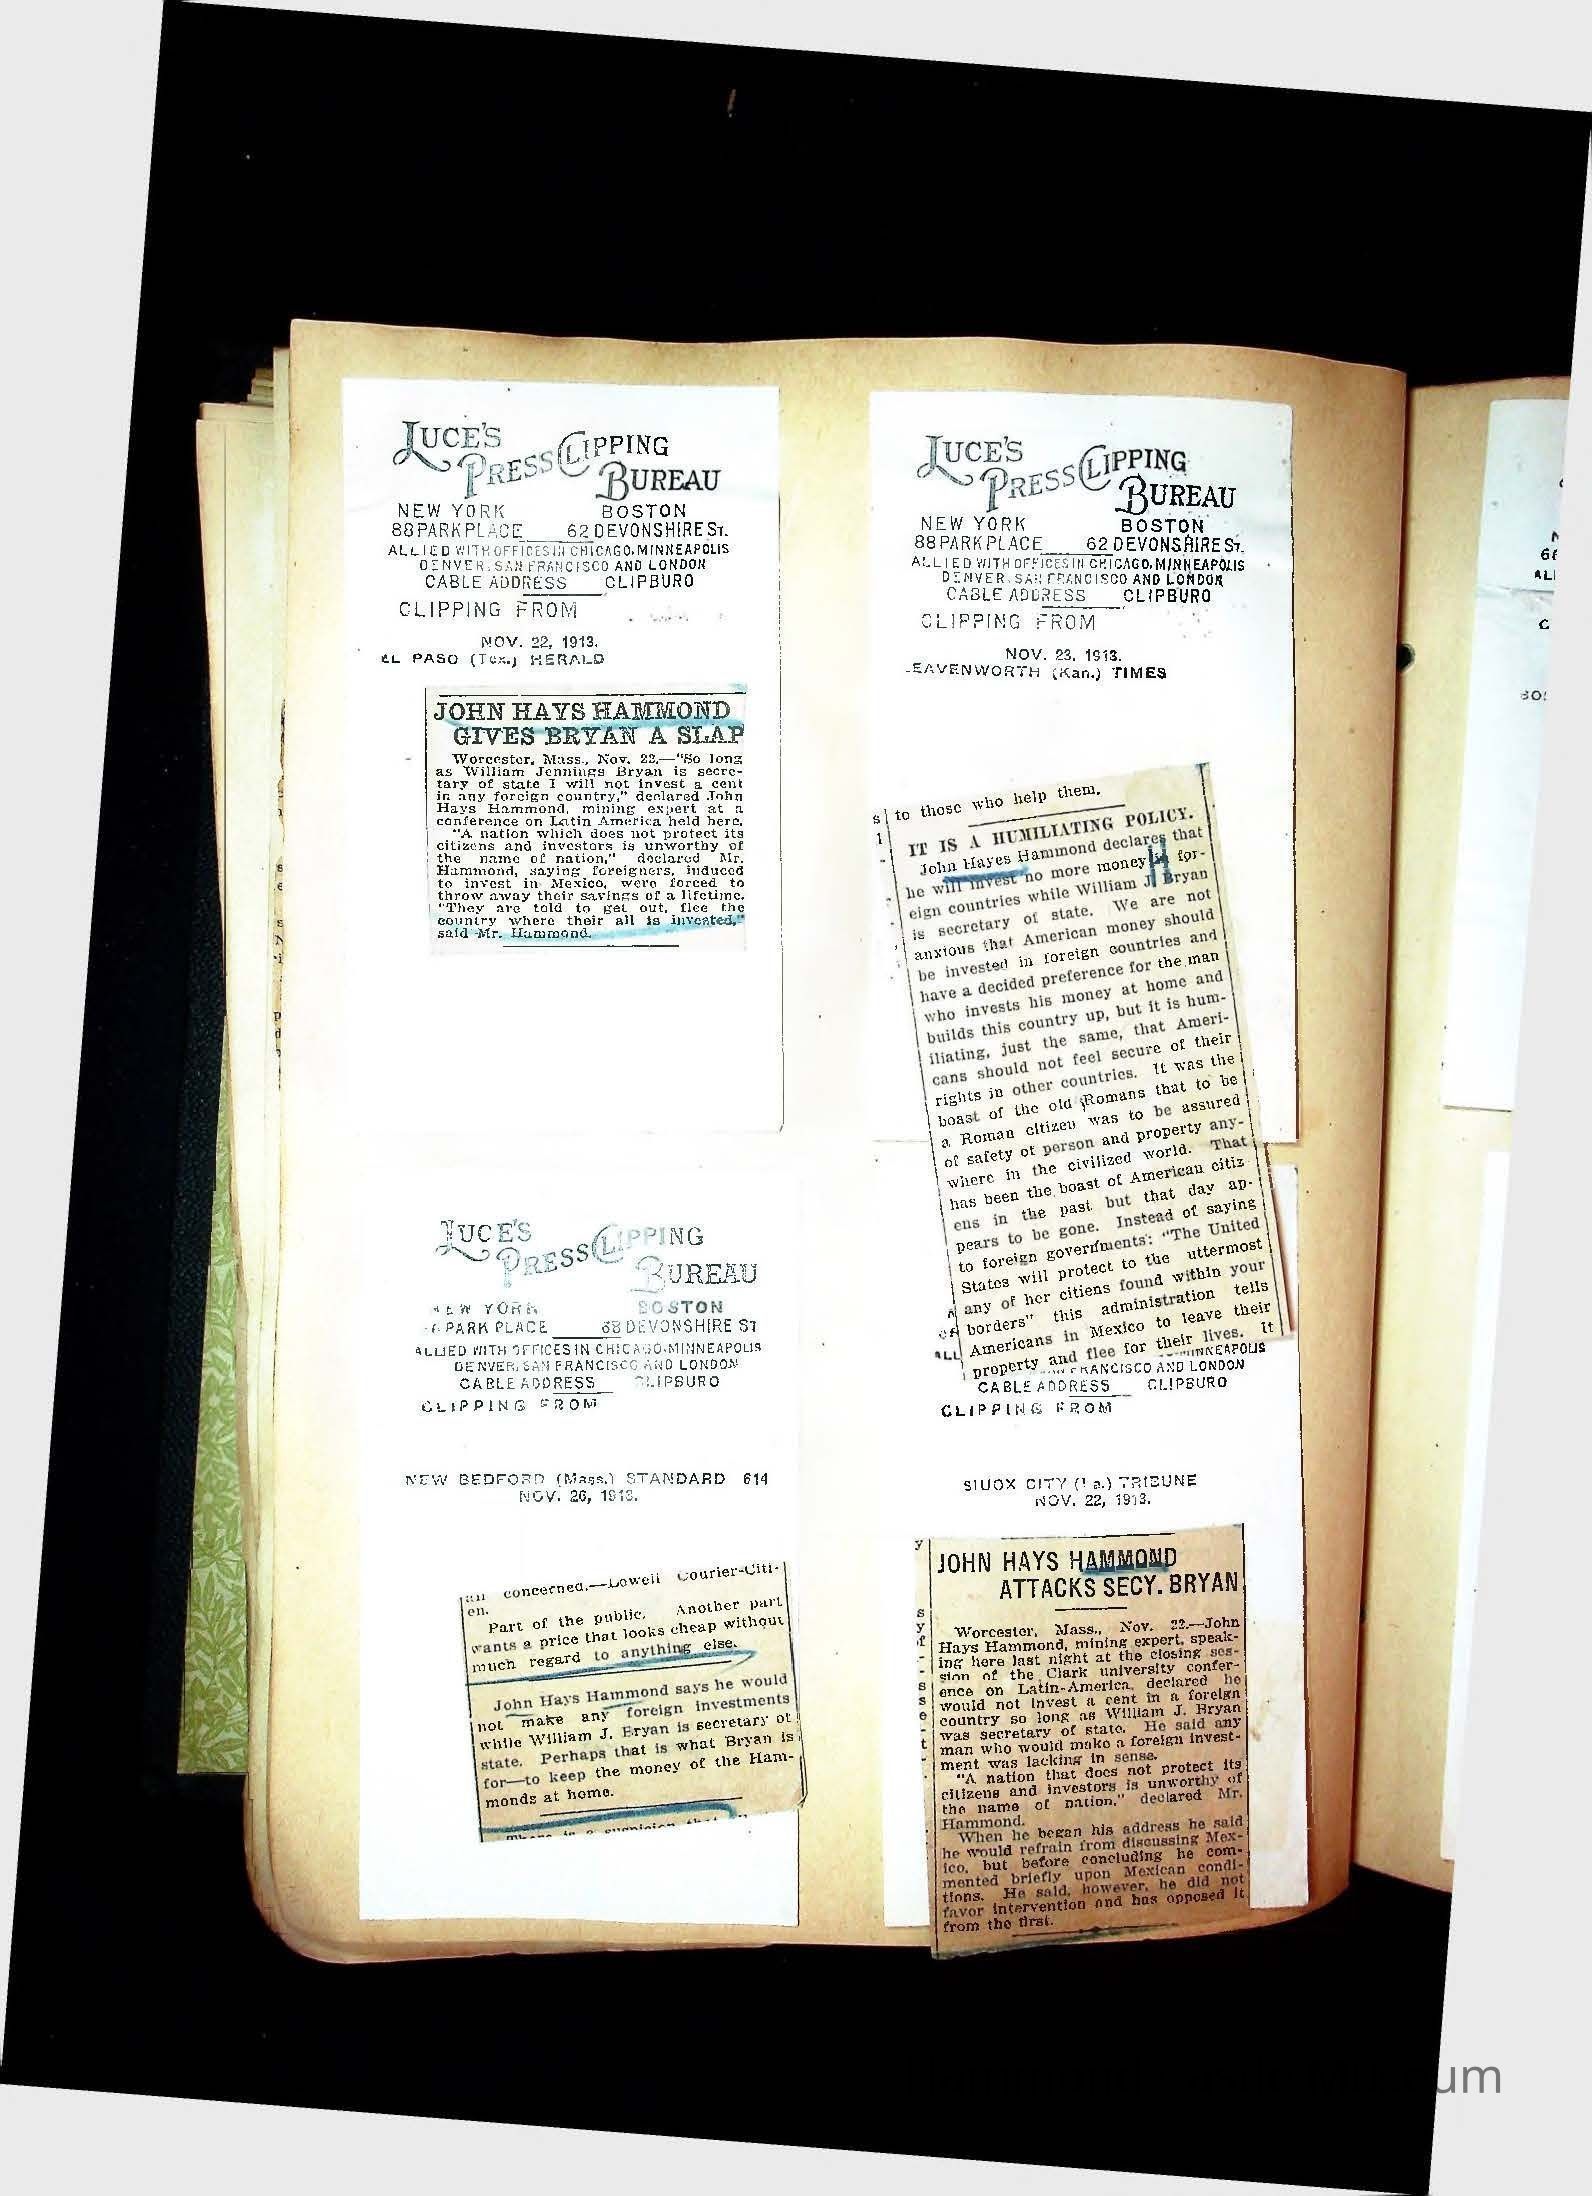 LUCE'S
PRESS CLIPPING
BUREAU
NEW YORK BOSTON
88 PARK PLACE 62 DEVONSHIRE ST.
ALLIED WITH OFFICES IN CHICAGO, MINNEAPOLIS
DENVER, SAN FRANCISCO AND LONDON
CABLE ADDRESS CLIPBURO
CLIPPING FROM
NOV. 22, 1913.
EL PASO (Tex.) HERALD
JOHN HAYS HAMMOND
GIVES BRYAN A SLAP
Worcester, Mass., Nov. 22.—"So long
as William Jennings Bryan is secre-
tary of state I will not invest a cent
in any foreign country," declared John
Hays Hammond, mining expert at a
conference on Latin America held here.
"A nation which does not protect its
citizens and investors is unworthy of
the name of nation," declared Mr.
Hammond, saying foreigners, induced
to invest in Mexico, were forced to
throw away their savings of a lifetime.
"They are told to get out, flee the
country where their all is invested,"
said Mr. Hammond.
LUCE'S
PRESS CLIPPING
BUREAU
NEW YORK BOSTON
88 PARK PLACE 62 DEVONSHIRE ST.
ALLIED WITH OFFICES IN CHICAGO, MINNEAPOLIS
DENVER, SAN FRANCISCO AND LONDON
CABLE ADDRESS CLIPBURO
CLIPPING FROM
NOV. 23, 1913.
LEAVENWORTH (Kan.) TIMES
s to those who help them.
IT IS A HUMILIATING POLICY.
John Hayes Hammond declares that
he will invest no more money in for-
eign countries while William J. Bryan
is secretary of state. We are not
anxious that American money should
be invested in foreign countries and
have a decided preference for the man
who invests his money at home and
builds this country up, but it is hum-
iliating, just the same, that Ameri-
cans should not feel secure of their
rights in other countries. It was the
boast of the old Romans that to be
a Roman citizen was to be assured
of safety of person and property any-
where in the civilized world. That
has been the boast of American citiz
ens in the past but that day ap-
pears to be gone. Instead of saying
to foreign governments: "The United
States will protect to the uttermost
any of her citiens found within your
borders" this administration tells
Americans in Mexico to leave their
property and flee for their lives. It
LUCE'S
PRESS CLIPPING
BUREAU
NEW YORK BOSTON
PARK PLACE 68 DEVONSHIRE ST
ALLIED WITH OFFICES IN CHICAGO, MINNEAPOLIS
DENVER, SAN FRANCISCO AND LONDON
CABLE ADDRESS CLIPBURO
CLIPPING FROM
NEW BEDFORD (Mass.) STANDARD 614
NOV. 26, 1913.
concerned.—Lowell Courier-Citi-
en.
Part of the public. Another part
wants a price that looks cheap without
much regard to anything else.
John Hays Hammond says he would
not make any foreign investments
while William J. Bryan is secretary of
state. Perhaps that is what Bryan is
for—to keep the money of the Ham-
monds at home.
ALL MINNEAPOLIS
FRANCISCO AND LONDON
CABLE ADDRESS CLIPBURO
CLIPPING FROM
SIUOX CITY (Ia.) TRIBUNE
NOV. 22, 1913.
JOHN HAYS HAMMOND
ATTACKS SECY. BRYAN
Worcester, Mass., Nov. 22.—John
Hays Hammond, mining expert, speak-
ing here last night at the closing ses-
sion of the Clark university confer-
ence on Latin-America, declared he
would not invest a cent in a foreign
country so long as William J. Bryan
was secretary of state. He said any
man who would make a foreign invest-
ment was lacking in sense.
"A nation that does not protect its
citizens and investors is unworthy of
the name of nation," declared Mr.
Hammond.
When he began his address he said
he would refrain from discussing Mex-
ico, but before concluding he com-
mented briefly upon Mexican condi-
tions. He said, however, he did not
favor intervention and has opposed it
from the first.
um